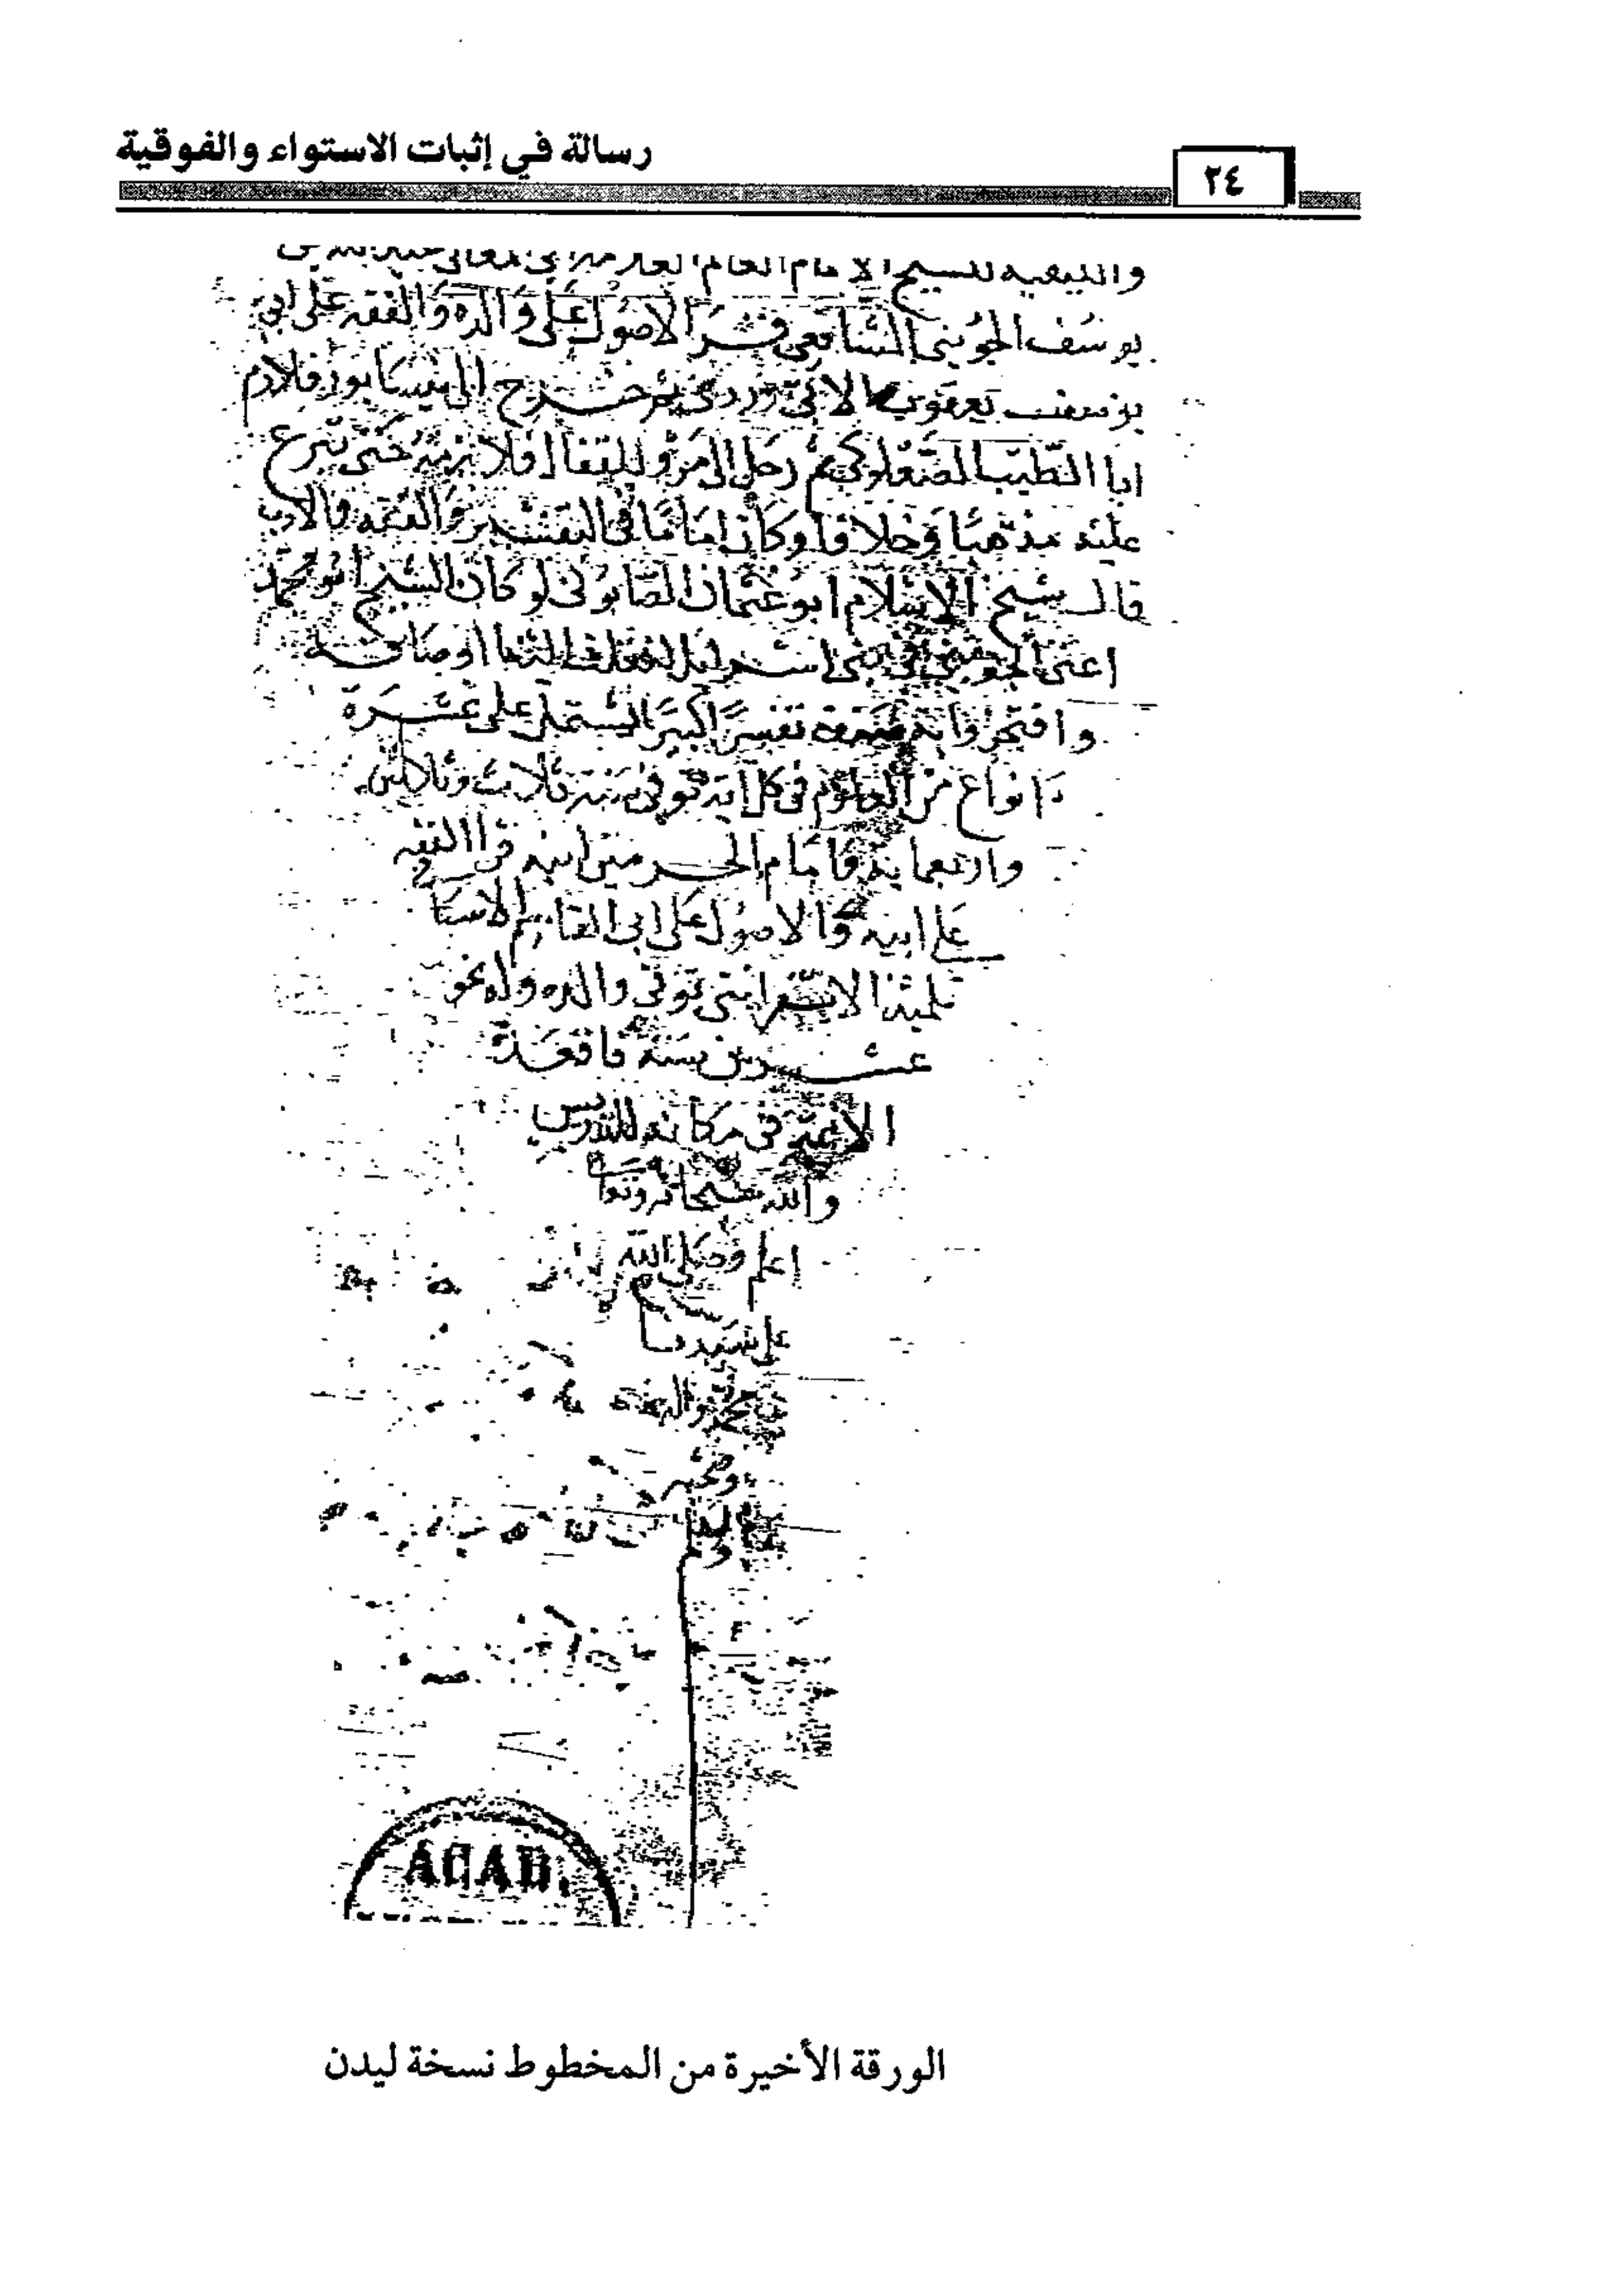 رسالة في إثبات الاستواء والفوقية
٢٤
للشيخ الامام العالم العلامة
يوسف الجويني الشافعي قرا الاصول على والده والفقه على ابي
يوسف يعقوب الابيوردي ثم خرج الى نيسابور فلازم
ابا الطيب الصعلوكي ثم رحل الى مرو للقفال فلازمه حتى تبرع
عليه مذهبا وخلافا وكان اماما في التفسير والفقه والادب
قال شيخ الاسلام ابو عثمان الصابوني لو كان الشيخ ابو محمد
اعني الجويني في بني اسرائيل لنقلت الينا اوصافه
وافتخروا به تفسيرا كبيرا يشتمل على عشرة
انواع من العلوم في كل اية توفي سنة ثلاث وثلاثين
واربعماية واما امام الحرمين ابنه قرا الفقه
على ابيه والاصول على ابي القاسم الاسكا
تلميذ الاسفرائني توفي والده وله نحو
عشرين سنة فاقعده
الائمة في مكانه للتدريس
والله
اعلم وصلى الله
على سيدنا
محمد واله
وصحبه
وسلم
ACAD.
الورقة الأخيرة من المخطوط نسخة ليدن